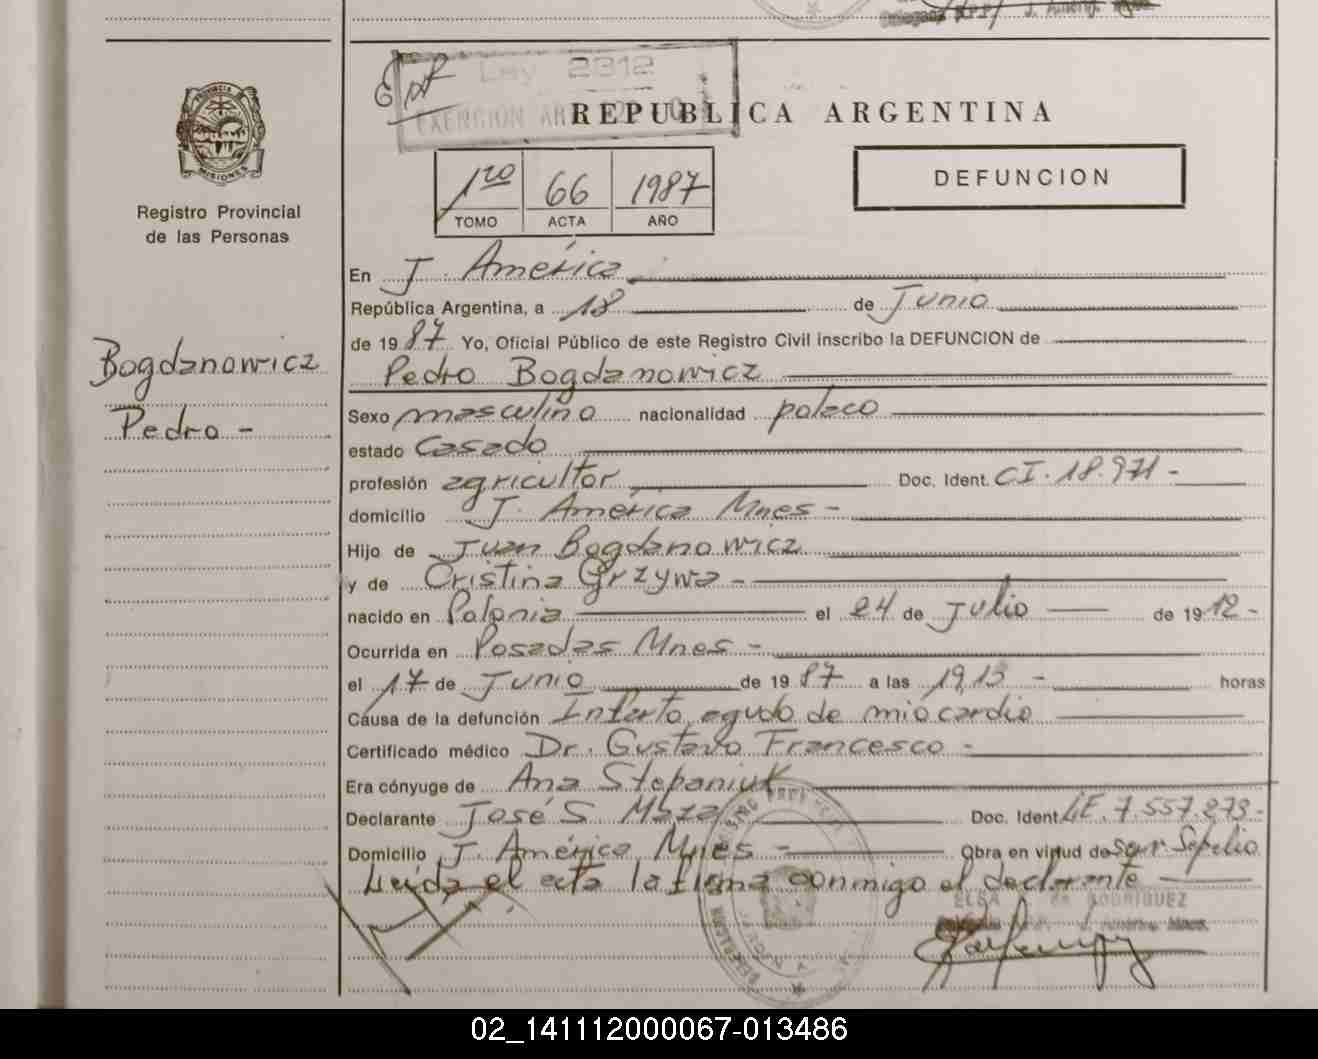 Ley 2312
EXENCION AR
REPUBLICA ARGENTINA
PROVINCIA
MISIONES
Registro Provincial
de las Personas
1ro 66 1987
TOMO ACTA AÑO
DEFUNCION
Bogdanowicz
Pedro -
En J. América
República Argentina, a 18 de Junio
de 1987 Yo, Oficial Público de este Registro Civil inscribo la DEFUNCION de
Pedro Bogdanowicz
Sexo masculino nacionalidad polaco
estado Casado
profesión agricultor Doc. Ident. CI. 18.971 -
domicilio J. América Mnes -
Hijo de Juan Bogdanowicz
y de Cristina Grzywa -
nacido en Polonia el 24 de Julio de 1912 -
Ocurrida en Posadas Mnes -
el 17 de Junio de 1987 a las 19,13 - horas
Causa de la defunción Infarto agudo de miocardio
Certificado médico Dr. Gustavo Francesco -
Era cónyuge de Ana Stepaniuk
Declarante José S. Maza Doc. Ident. LE. 7.557.273 -
Domicilio J. América Mnes - Obra en virtud de Serv. Sepelio
Leída el acta la firma conmigo el declarante
ELSA de RODRIGUEZ
02_141112000067-013486